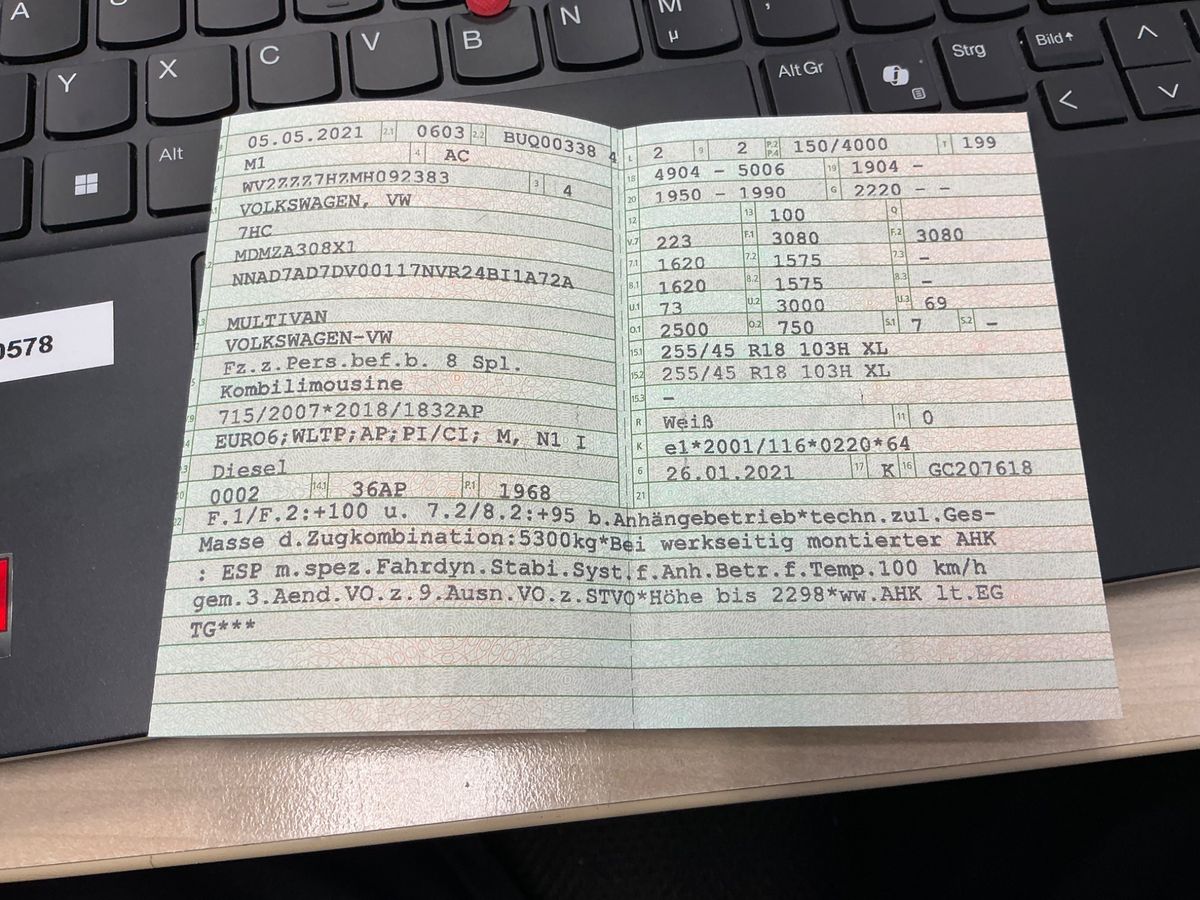 A
Y
X
C
V
B
N
M
µ
Alt
Alt Gr
Strg
Bild
0578
05.05.2021 2.1 0603 2.2 BUQ00338 4
M1 4 AC
WV2ZZZ7HZMH092383 3 4
VOLKSWAGEN, VW
7HC
MDMZA308X1
NNAD7AD7DV00117NVR24BI1A72A
MULTIVAN
VOLKSWAGEN-VW
Fz.z.Pers.bef.b. 8 Spl.
Kombilimousine
715/2007*2018/1832AP
EURO6;WLTP;AP;PI/CI; M, N1 I
Diesel
0002 14.1 36AP P.1 1968
L 2 9 2 P.2 P.4 150/4000 T 199
18 4904 - 5006 19 1904 -
20 1950 - 1990 G 2220 - -
12 13 100 Q
V.7 223 F.1 3080 F.2 3080
7.1 1620 7.2 1575 7.3 -
8.1 1620 8.2 1575 8.3 -
U.1 73 U.2 3000 U.3 69
O.1 2500 O.2 750 S.1 7 S.2 -
15.1 255/45 R18 103H XL
15.2 255/45 R18 103H XL
15.3 -
R Weiß 11 0
K e1*2001/116*0220*64
6 26.01.2021 17 K 16 GC207618
21
22 F.1/F.2:+100 u. 7.2/8.2:+95 b.Anhängebetrieb*techn.zul.Ges-
Masse d.Zugkombination:5300kg*Bei werkseitig montierter AHK
: ESP m.spez.Fahrdyn.Stabi.Syst.f.Anh.Betr.f.Temp.100 km/h
gem.3.Aend.VO.z.9.Ausn.VO.z.STVO*Höhe bis 2298*ww.AHK lt.EG
TG***